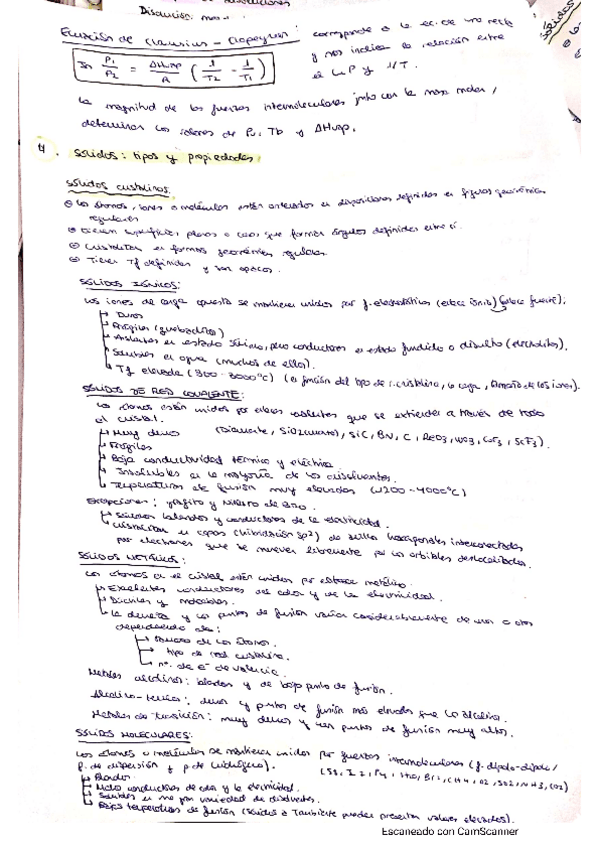 Ecuación de Clausius-Clapeyron: corresponde a la ec. de una recta
y nos indica la relación entre
el LnP y 1/T.
ln P1/P2 = ΔHvap/R (1/T2 - 1/T1)
La magnitud de las fuerzas intermoleculares junto con la masa molar,
determinan los valores de Pv, Tb y ΔHvap.
4. Sólidos: tipos y propiedades.
SÓLIDOS CRISTALINOS:
Los átomos, iones o moléculas están ordenados en disposiciones definidas en figuras geométricas
regulares
Tienen superficies planas o caras que forman ángulos definidos entre sí.
Cristalizan en formas geométricas regulares
Tienen Tf definidas y son opacos.
SÓLIDOS IÓNICOS:
Los iones de carga opuesta se mantienen unidos por f. electrostática (enlace iónico) (enlace fuerte).
Duros
Frágiles (quebradizos)
Aislantes en estado sólido, pero conductores en estado fundido o disuelto (electrolitos).
Solubles en agua (muchos de ellos).
Tf elevada (300-3000°C) (en función del tipo de r. cristalina, la carga, tamaño de los iones).
SÓLIDOS DE RED COVALENTE:
Los átomos están unidos por enlaces covalentes que se extienden a través de todo
el cristal.
Muy duros (Diamante, SiO2 (cuarzo), SiC, BN, C, ReO3, WO3, ScF3).
Frágiles
Baja conductividad térmica y eléctrica
Insolubles en la mayoría de los disolventes.
Temperaturas de fusión muy elevadas (1200-4000°C)
Excepciones: grafito y nitruro de boro.
Sólidos blandos y conductores de la electricidad.
Cristalizan en capas (hibridación sp2) de anillos hexagonales interconectados
por electrones que se mueven libremente por los orbitales deslocalizados.
SÓLIDOS METÁLICOS:
Los átomos en el cristal están unidos por enlace metálico.
Excelentes conductores del calor y de la electricidad.
Dúctiles y maleables.
La dureza y los puntos de fusión varían considerablemente de unos a otros
dependiendo de:
Tamaño de los átomos.
tipo de red cristalina.
nº. de e- de valencia.
Metales alcalinos: blandos y de bajo punto de fusión.
Alcalino-térreos: duros y puntos de fusión más elevados que los alcalinos.
Metales de transición: muy duros y con puntos de fusión muy altos.
SÓLIDOS MOLECULARES:
Los átomos o moléculas se mantienen unidos por fuerzas intermoleculares (f. dipolo-dipolo/
f. de dispersión y p. de hidrógeno). (S8, I2, P4, H2O, Br2, CH4, O2, SO2, NH3, CO2)
Blandos
Malos conductores de calor y la electricidad.
Solubles en una gran variedad de disolventes.
Bajas temperaturas de fusión
Escaneado con CamScanner